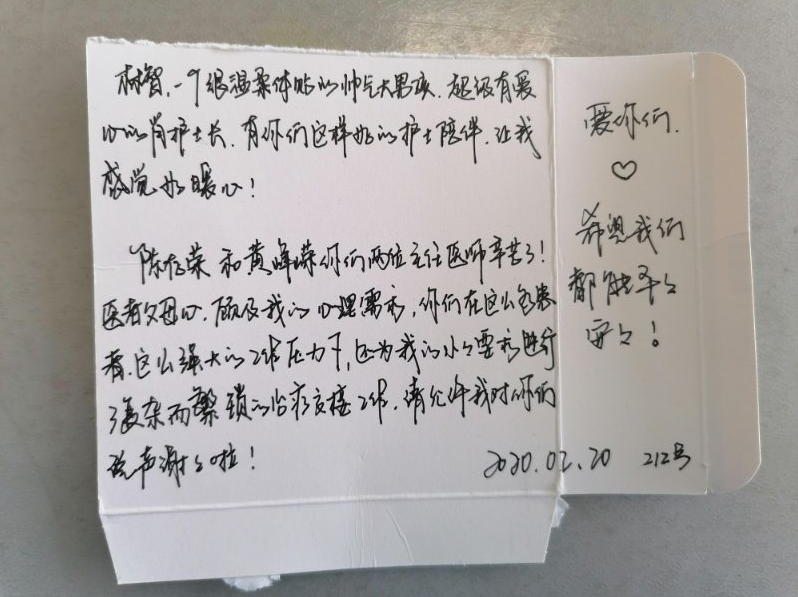 林智,一个很温柔体贴的帅气大男孩,超级有爱
心的肖护士长,有你们这样好的护士陪伴,让我
感觉好暖心!
陈存荣和黄峰嵘你们两位主任医师辛苦了!
医者父母心,顾及我的心理需求,你们在这么多患
者,这么强大的工作压力下,还为我的小小要求进行
复杂而繁锁的治疗交接工作,请允许我对你们
说声谢谢啦!
2020.02.20 212号
爱你们.
♡
希望我们
都能平平
安安!